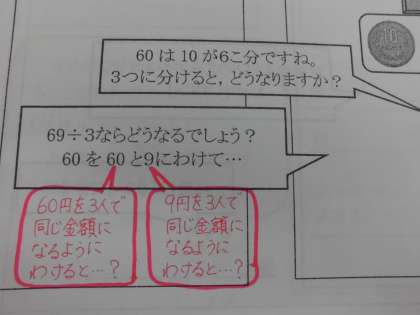 60は10が6こ分ですね。
3つに分けると，どうなりますか？
69÷3ならどうなるでしょう？
60を60と9にわけて…
60円を3人で
同じ金額に
なるように
わけると…？
9円を3人で
同じ金額に
なるように
わけると…？
10